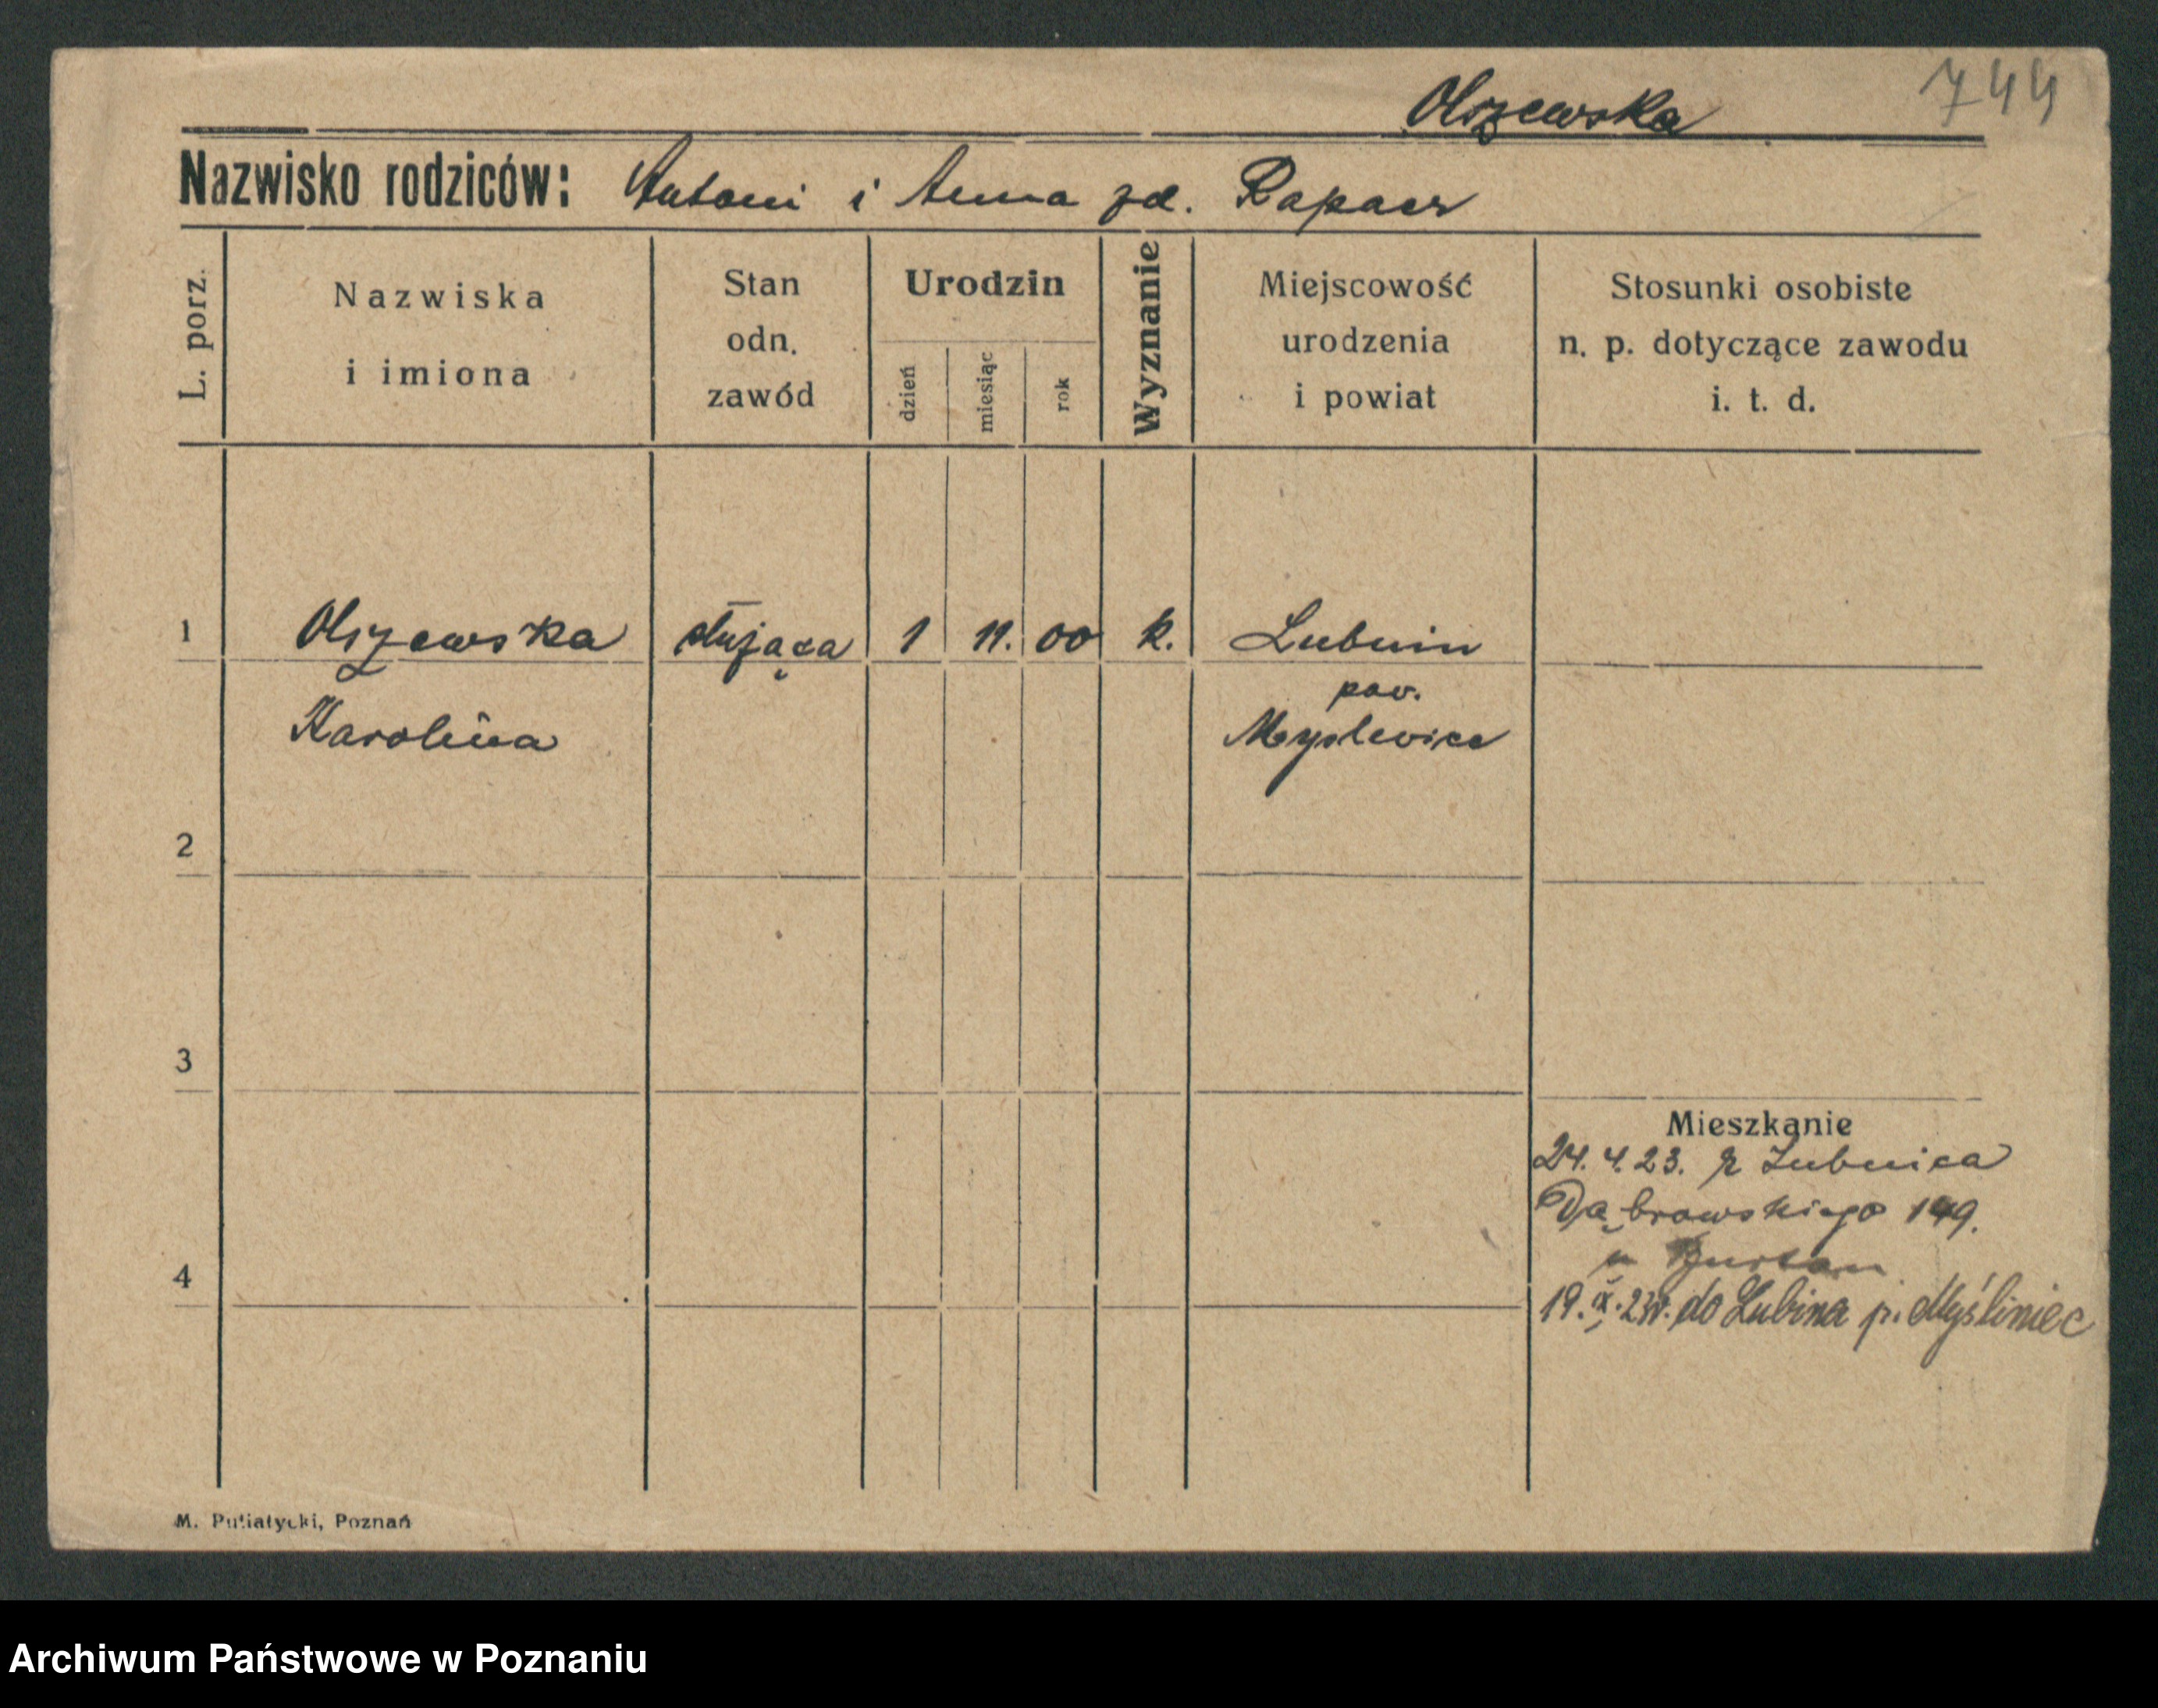 744
Olszewska
Nazwisko rodziców: Antoni i Anna zd. Rapacz
L. porz.
Nazwiska
i imiona
Stan
odn.
zawód
Urodzin
dzień
miesiąc
rok
Wyznanie
Miejscowość
urodzenia
i powiat
Stosunki osobiste
n. p. dotyczące zawodu
i. t. d.
1 Olszewska służąca 1 11. 00 k. Lubnin
Karolina
pow.
Myslevice
2
3
4
Mieszkanie
24. 4. 23. z Lubnica
Dąbrowskiego 149.
u
19. X. 23r. do Lubina p. Myśliniec
M. Putiatycki, Poznań
Archiwum Państwowe w Poznaniu